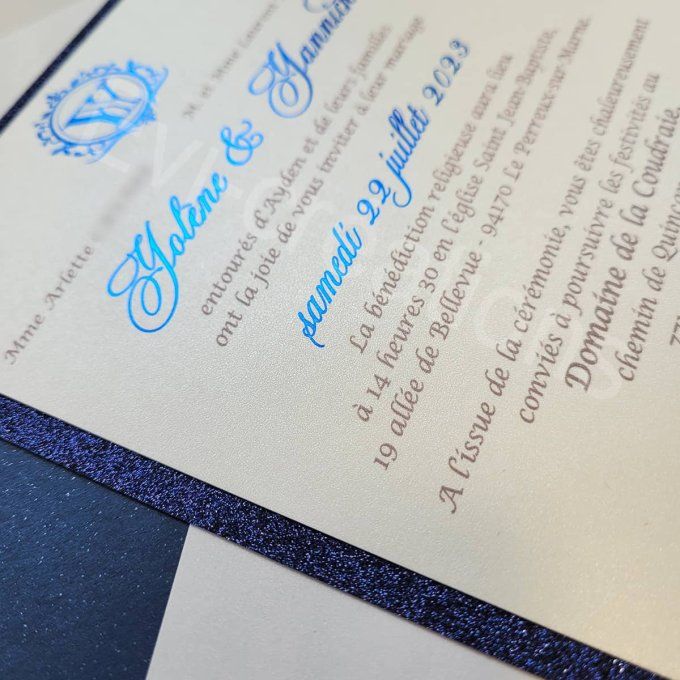 YY
Mme Arlette
M. et Mme Laurent
Yolène & Yannick
entourés d'Ayden et de leurs familles
ont la joie de vous inviter à leur mariage
samedi 22 juillet 2023
La bénédiction religieuse aura lieu
à 14 heures 30 en l'église Saint Jean-Baptiste,
19 allée de Bellevue - 94170 Le Perreux-sur-Marne.
A l'issue de la cérémonie, vous êtes chaleureusement
conviés à poursuivre les festivités au
Domaine de la Coudraie,
chemin de